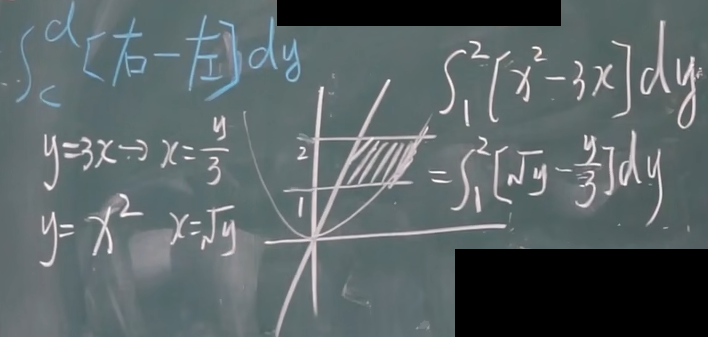 ∫_c^d [右-左] dy
y=3x→x=y/3
y=x² x=√y
2
1
∫_1^2 [x²-3x] dy
=∫_1^2 [√y-y/3] dy